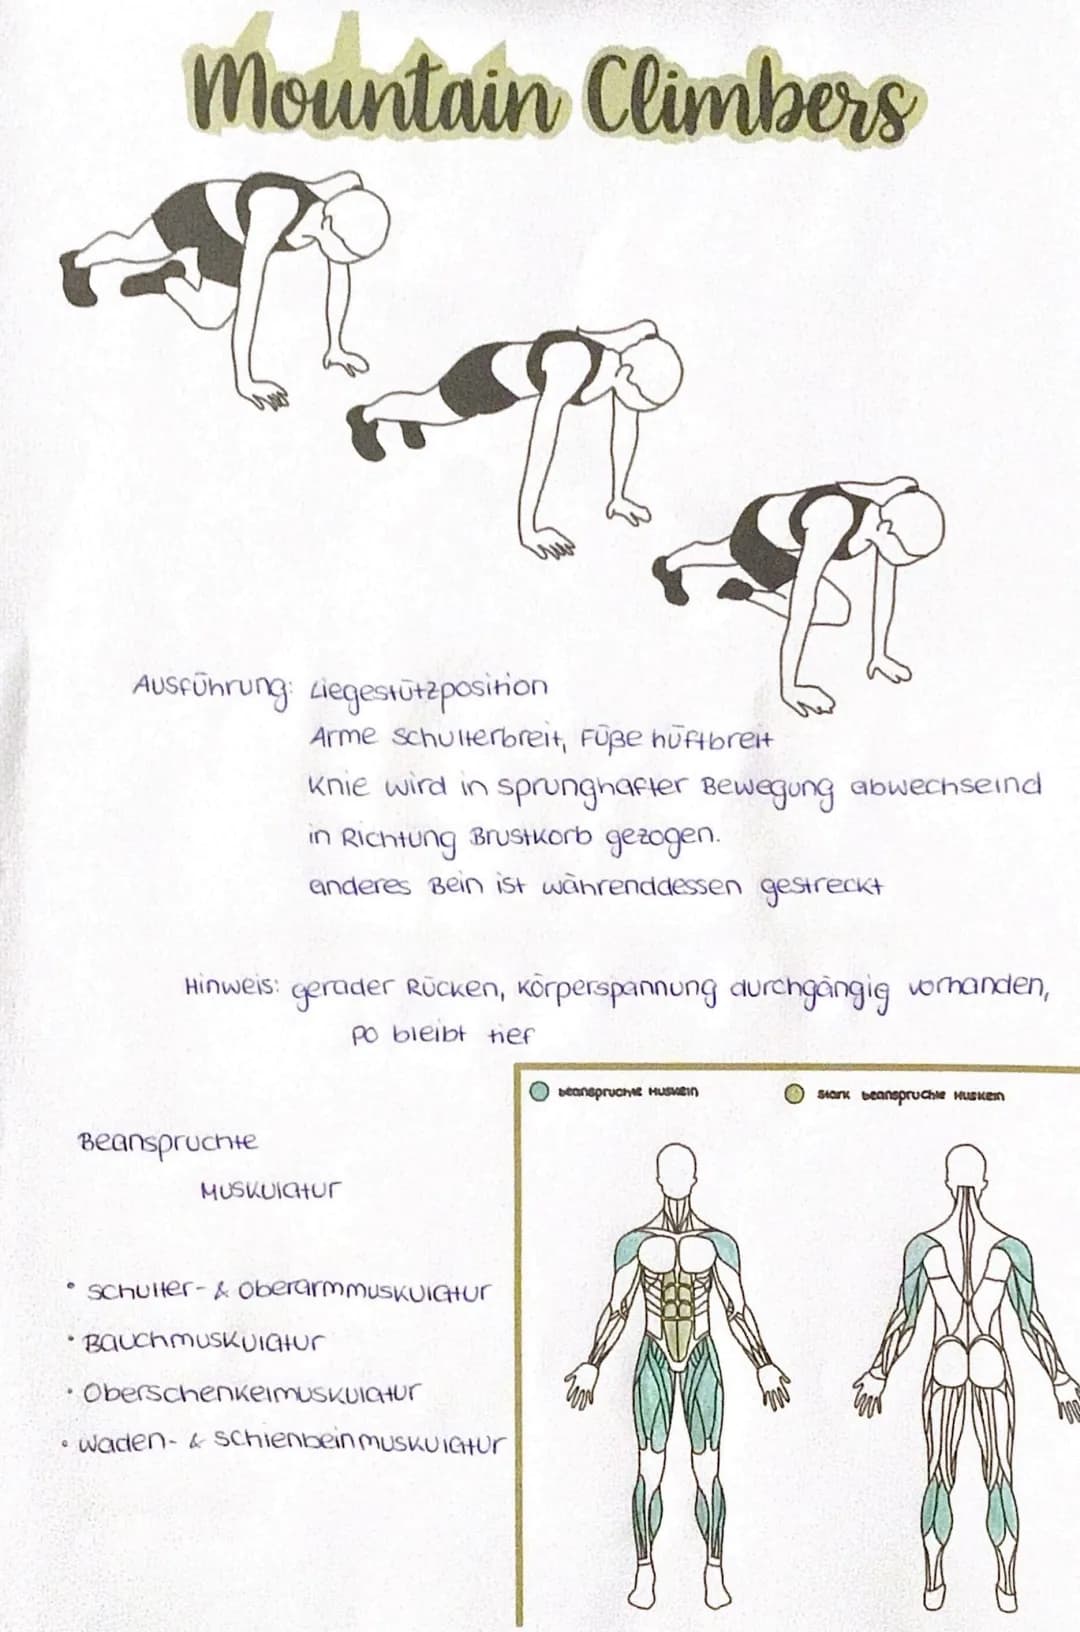 Mountain Climbers
Ausführung: Liegestützposition
Arme schulterbreit, Füße hüftbreit
Knie wird in sprunghafter Bewegung abwechselnd
in Richtung Brustkorb gezogen.
anderes Bein ist währenddessen gestreckt
Hinweis: gerader Rücken, Körperspannung durchgängig vorhanden,
Po bleibt tief
beanspruchte Muskeln
stark beanspruchte Muskeln
Beanspruchte
Muskulatur
• Schulter- & Oberarmmuskulatur
• Bauchmuskulatur
• Oberschenkelmuskulatur
• Waden- & Schienbeinmuskulatur